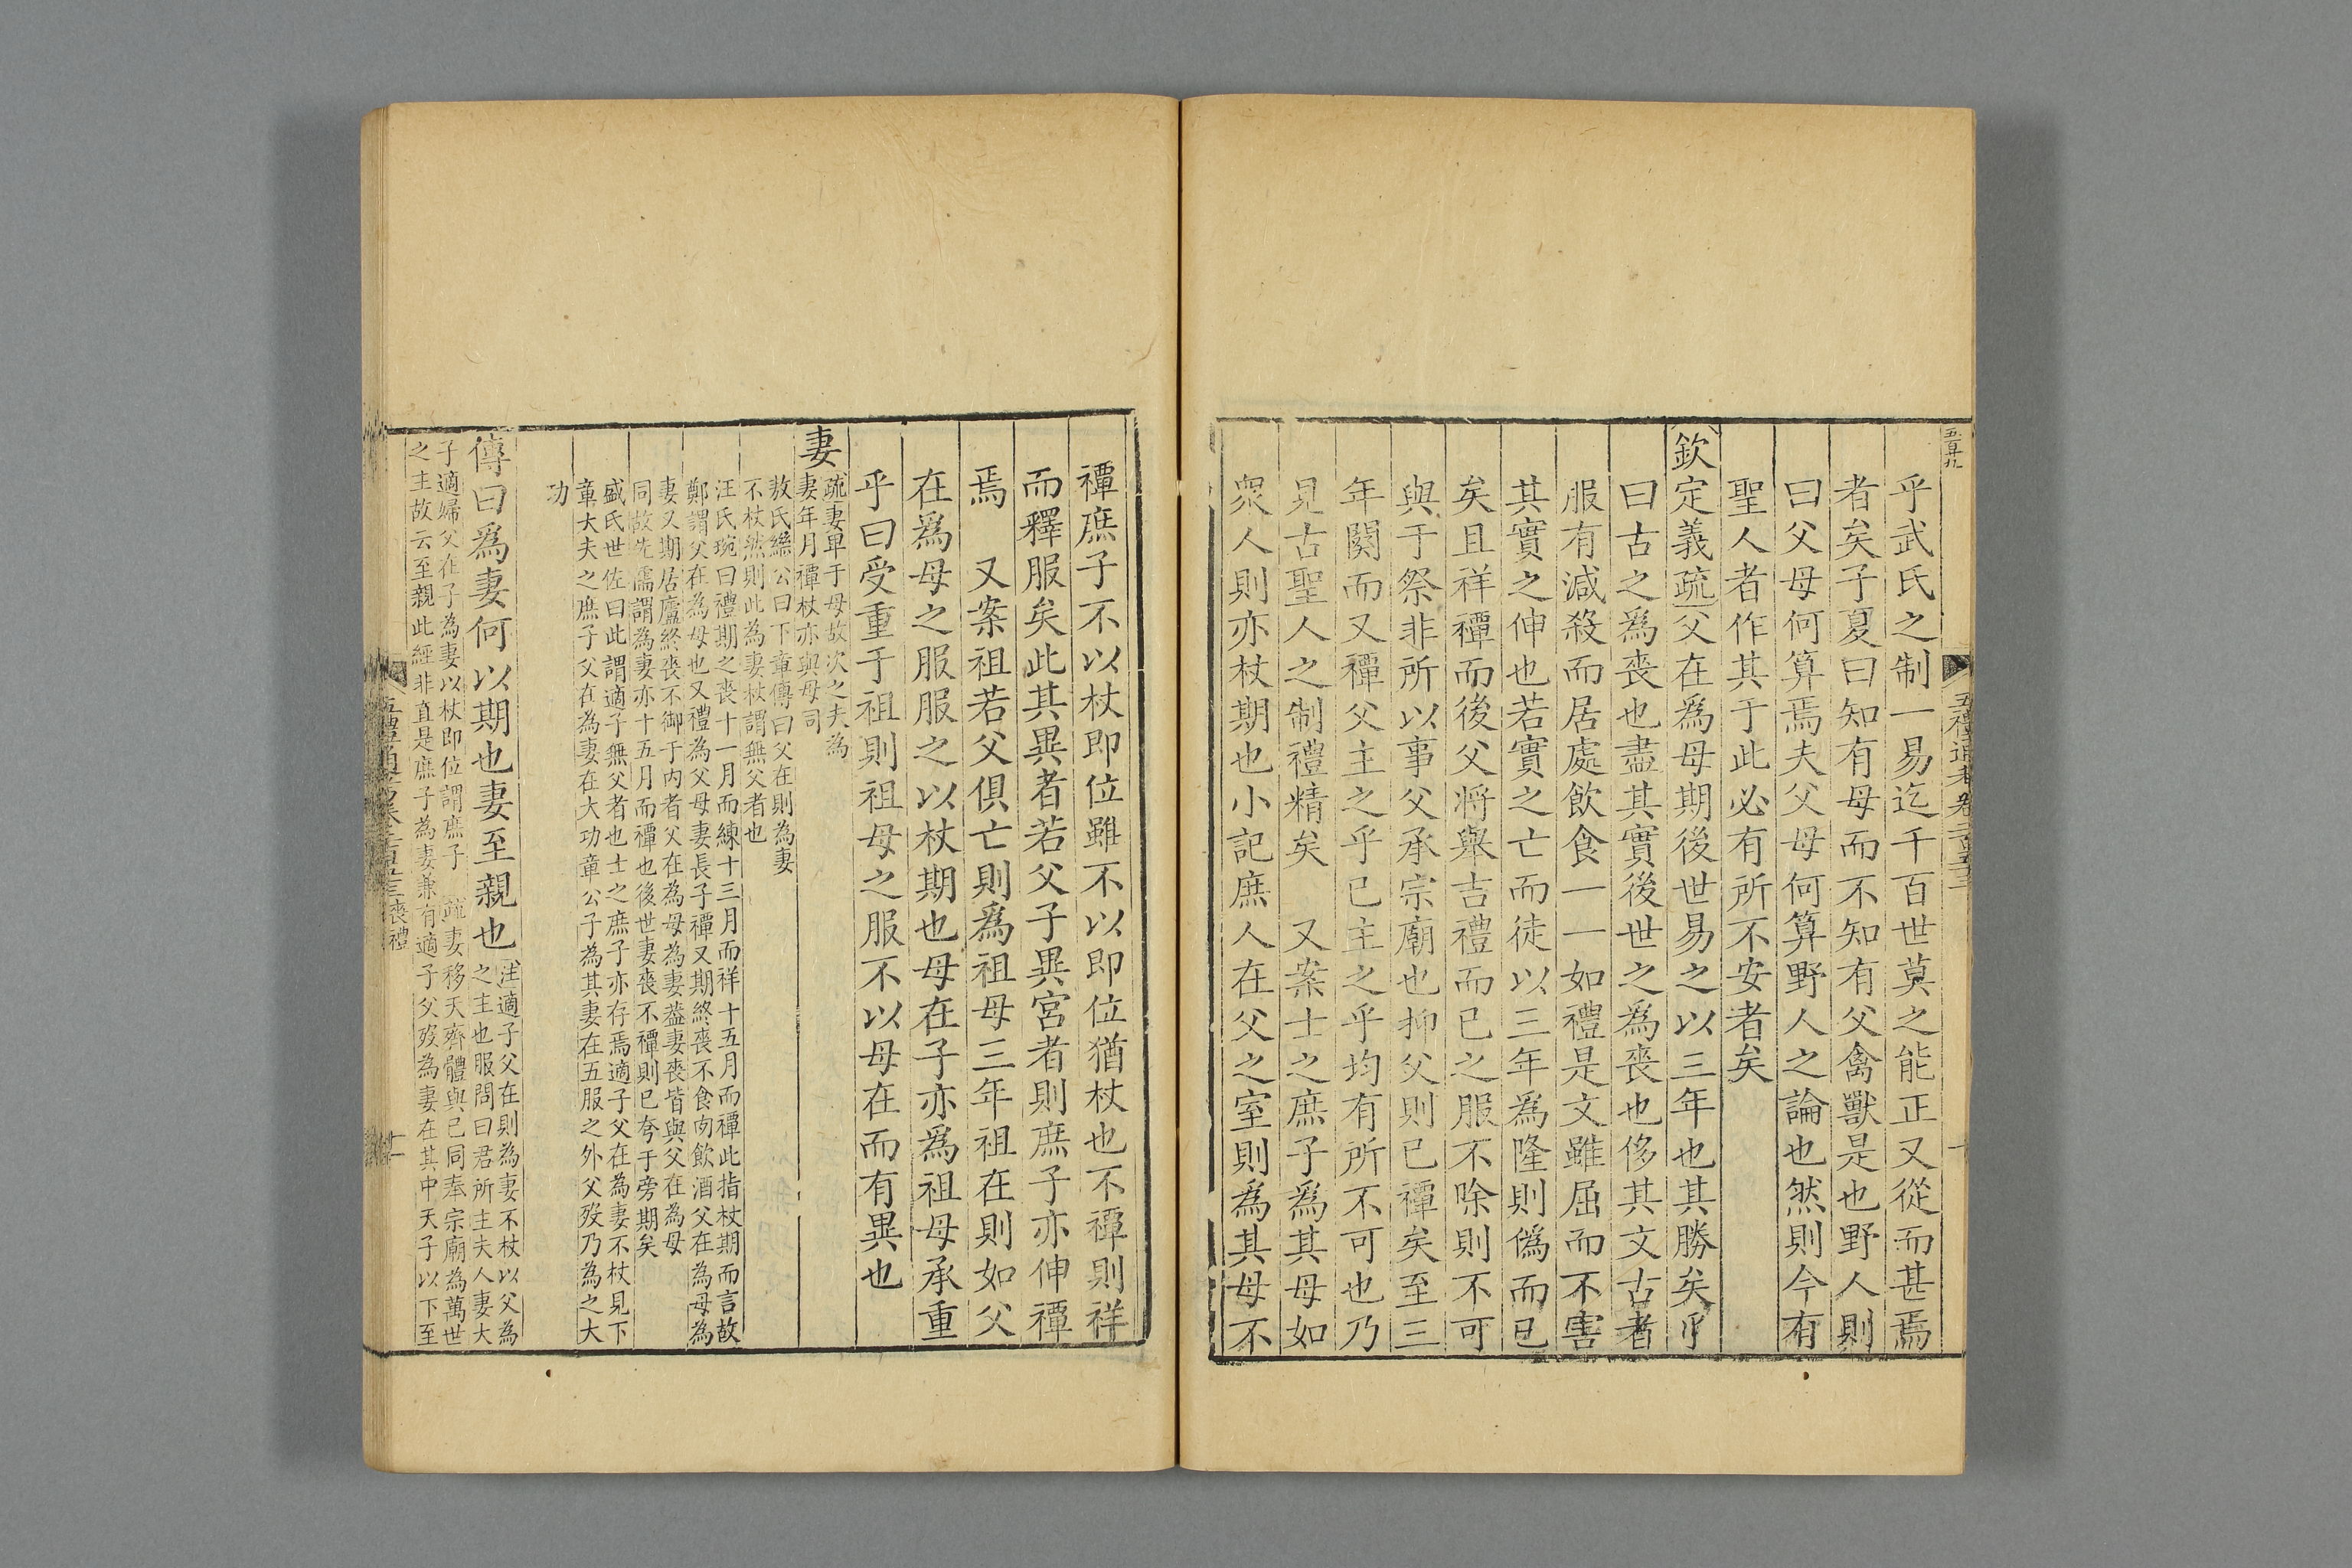 五百十九
五禮通考卷二百五十三
十
乎武氏之制一易迄千百世莫之能正又從而甚焉
者矣子夏曰知有母而不知有父禽獸是也野人則
曰父母何算焉夫父母何算野人之論也然則今有
聖人者作其于此必有所不安者矣
欽定義疏父在爲母期後世易之以三年也其勝矣乎
曰古之爲喪也盡其實後世之爲喪也侈其文古者
服有減殺而居處飲食一一如禮是文雖屈而不害
其實之伸也若實之亡而徒以三年爲隆則僞而已
矣且祥禫而後父將舉吉禮而已之服不除則不可
與于祭非所以事父承宗廟也抑父則已禫矣至三
年闋而又禫父主之乎已主之乎均有所不可也乃
見古聖人之制禮精矣　又案士之庶子爲其母如
衆人則亦杖期也小記庶人在父之室則爲其母不
禫庶子不以杖即位雖不以即位猶杖也不禫則祥
而釋服矣此其異者若父子異宮者則庶子亦伸禫
焉　又案祖若父俱亡則爲祖母三年祖在則如父
在爲母之服服之以杖期也母在子亦爲祖母承重
乎曰受重于祖則祖母之服不以母在而有異也
妻
疏妻卑于母故次之夫為
妻年月禫杖亦與母司
敖氏繼公曰下章傳曰父在則為妻
不杖然則此為妻杖謂無父者也
汪氏琬曰禮期之喪十一月而練十三月而祥十五月而禫此指杖期而言故
鄭謂父在為母也又禮為父母妻長子禫又期終喪不食肉飲酒父在為母為
妻又期居廬終喪不御于内者父在為母為妻葢妻喪皆與父在為母
同故先儒謂為妻亦十五月而禫也後世妻喪不禫則已夸于旁期矣
盛氏世佐曰此謂適子無父者也士之庶子亦存焉適子父在為妻不杖見下
章大夫之庶子父在為妻在大功章公子為其妻在五服之外父歿乃為之大
功
傳曰爲妻何以期也妻至親也
注適子父在則為妻不杖以父為
之主也服問曰君所主夫人妻大
子適婦父在子為妻以杖即位謂庶子　疏妻移天齊體與已同奉宗廟為萬世
之主故云至親此經非直是庶子為妻兼有適子父歿為妻在其中天子以下至
喪禮
十一